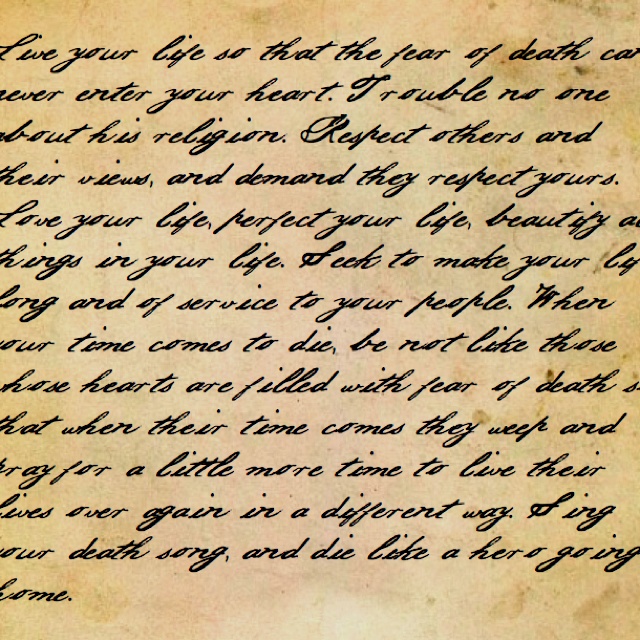 Live your life so that the fear of death can
never enter your heart. Trouble no one
about his religion. Respect others and
their views, and demand they respect yours.
Love your life, perfect your life, beautify al
things in your life. Seek to make your lif
long and of service to your people. When
your time comes to die, be not like those
whose hearts are filled with fear of death s
that when their time comes they weep and
pray for a little more time to live their
lives over again in a different way. Sing
your death song, and die like a hero going
home.